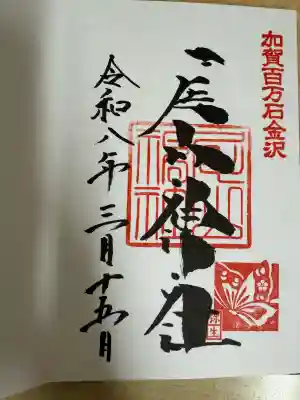 加賀百万石金沢
尾山神社
弥生
令和八年三月十五日